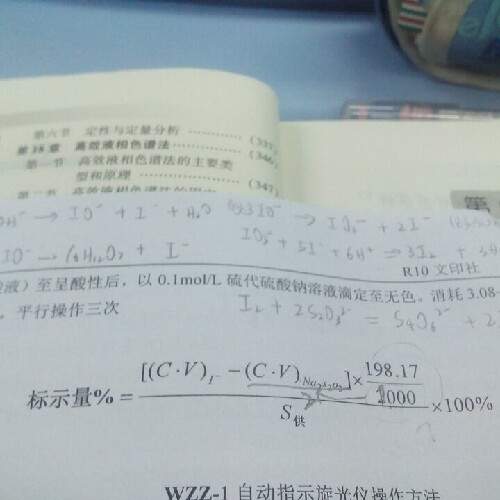 第六节 定性与定量分析 ………… (33
第18章 高效液相色谱法 ………… (346
第一节 高效液相色谱法的主要类
型和原理 ………… (347
第二节 高效液相色谱法的
第
OH⁻ → IO⁻ + I⁻ + H₂O 3IO⁻ → IO₃⁻ + 2I⁻
IO⁻ → C₆H₁₂O₇ + I⁻ IO₃⁻ + 5I⁻ + 6H⁺ → 3I₂ + 3H
R10 文印社
液)至呈酸性后,以 0.1mol/L 硫代硫酸钠溶液滴定至无色。消耗 3.08-
。平行操作三次 I₂ + 2S₂O₃²⁻ = S₄O₆²⁻ + 2
标示量% = [(C·V)I⁻ − (C·V)Na₂S₂O₃] × 198.17/1000 / S供 × 100%
WZZ-1 自动指示旋光仪操作方法